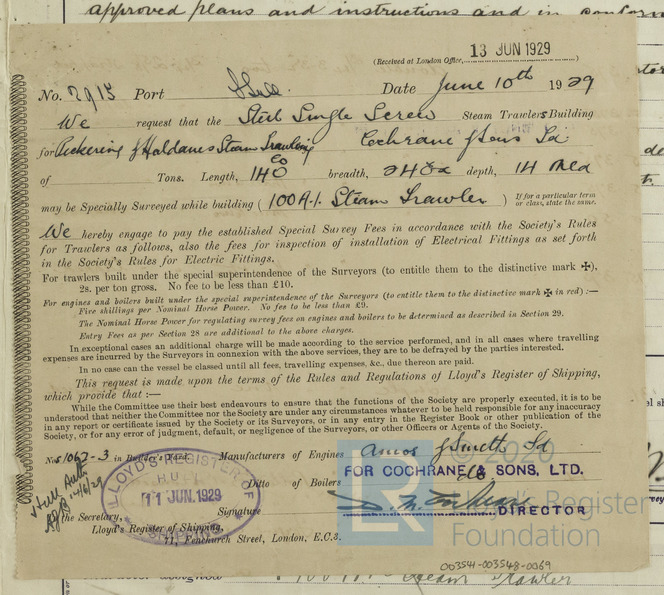 approved plans and instructions and in conform
(Received at London Office, 13 JUN 1929)
No. 2915 Port Hull Date June 10th 1929
We request that the Steel Single Screw Steam Trawlers Building
for Pickering & Haldanes Steam Trawling Co Cochrane & Sons Ld
of Tons. Length, 140 breadth, 24 depth, 14 Mld
may be Specially Surveyed while building ( 100 A.1. Steam Trawler ) If for a particular term or class, state the same.
We hereby engage to pay the established Special Survey Fees in accordance with the Society's Rules
for Trawlers as follows, also the fees for inspection of installation of Electrical Fittings as set forth
in the Society's Rules for Electric Fittings.
For trawlers built under the special superintendence of the Surveyors (to entitle them to the distinctive mark ✠),
2s. per ton gross. No fee to be less than £10.
For engines and boilers built under the special superintendence of the Surveyors (to entitle them to the distinctive mark ✠ in red) :—
Five shillings per Nominal Horse Power. No fee to be less than £9.
The Nominal Horse Power for regulating survey fees on engines and boilers to be determined as described in Section 29.
Entry Fees as per Section 28 are additional to the above charges.
In exceptional cases an additional charge will be made according to the service performed, and in all cases where travelling
expenses are incurred by the Surveyors in connection with the above services, they are to be defrayed by the parties interested.
In no case can the vessel be classed until all fees, travelling expenses, &c., due thereon are paid.
This request is made upon the terms of the Rules and Regulations of Lloyd's Register of Shipping,
which provide that :—
While the Committee use their best endeavours to ensure that the functions of the Society are properly executed, it is to be
understood that neither the Committee nor the Society are under any circumstances whatever to be held responsible for any inaccuracy
in any report or certificate issued by the Society or its Surveyors, or in any entry in the Register Book or other publication of the
Society, or for any error of judgment, default, or negligence of the Surveyors, or other Officers or Agents of the Society.
No. s 1062-3 in Builder's Yard. Manufacturers of Engines Amos & Smith Ld
Ditto of Boilers do
FOR COCHRANE & SONS, LTD.
LLOYD'S REGISTER OF SHIPPING
HULL
11 JUN 1929
Signature
DIRECTOR
the Secretary,
Lloyd's Register of Shipping,
71, Fenchurch Street, London, E.C.3.
© 2020
LR
Register
Foundation
003541-003548-0069
Steam Trawler